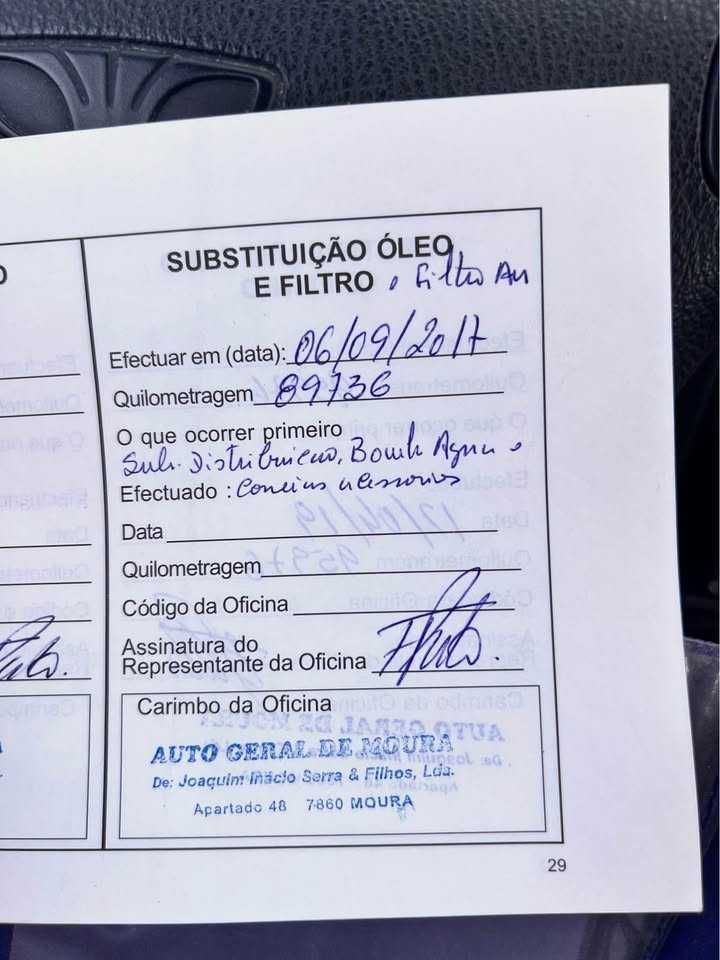 SUBSTITUIÇÃO ÓLEO
E FILTRO e Filtro Ar
Efectuar em (data): 06/09/2017
Quilometragem 89736
O que ocorrer primeiro
Sub. Distribuicao, Bomba Agua e
Efectuado : Correias acessorios
Data
Quilometragem
Código da Oficina
Assinatura do
Representante da Oficina
Carimbo da Oficina
AUTO GERAL DE MOURA
De: Joaquim Inácio Serra & Filhos, Lda.
Apartado 48 7860 MOURA
29